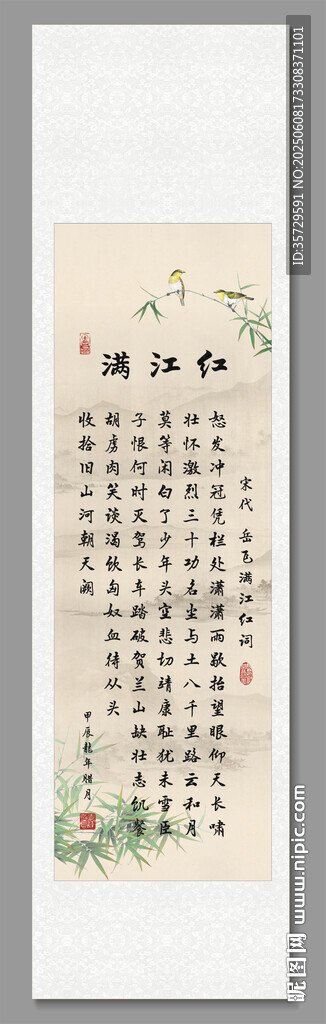 满江红
宋代 岳飞满江红词
怒发冲冠凭栏处潇潇雨歇抬望眼仰天长啸
壮怀激烈三十功名尘与土八千里路云和月
莫等闲白了少年头空悲切靖康耻犹未雪臣
子恨何时灭驾长车踏破贺兰山缺壮志饥餐
胡虏肉笑谈渴饮匈奴血待从头
收拾旧山河朝天阙
甲辰龍年腊月
ID:35729591 NO:20250608173308371101
昵图网 www.nipic.com